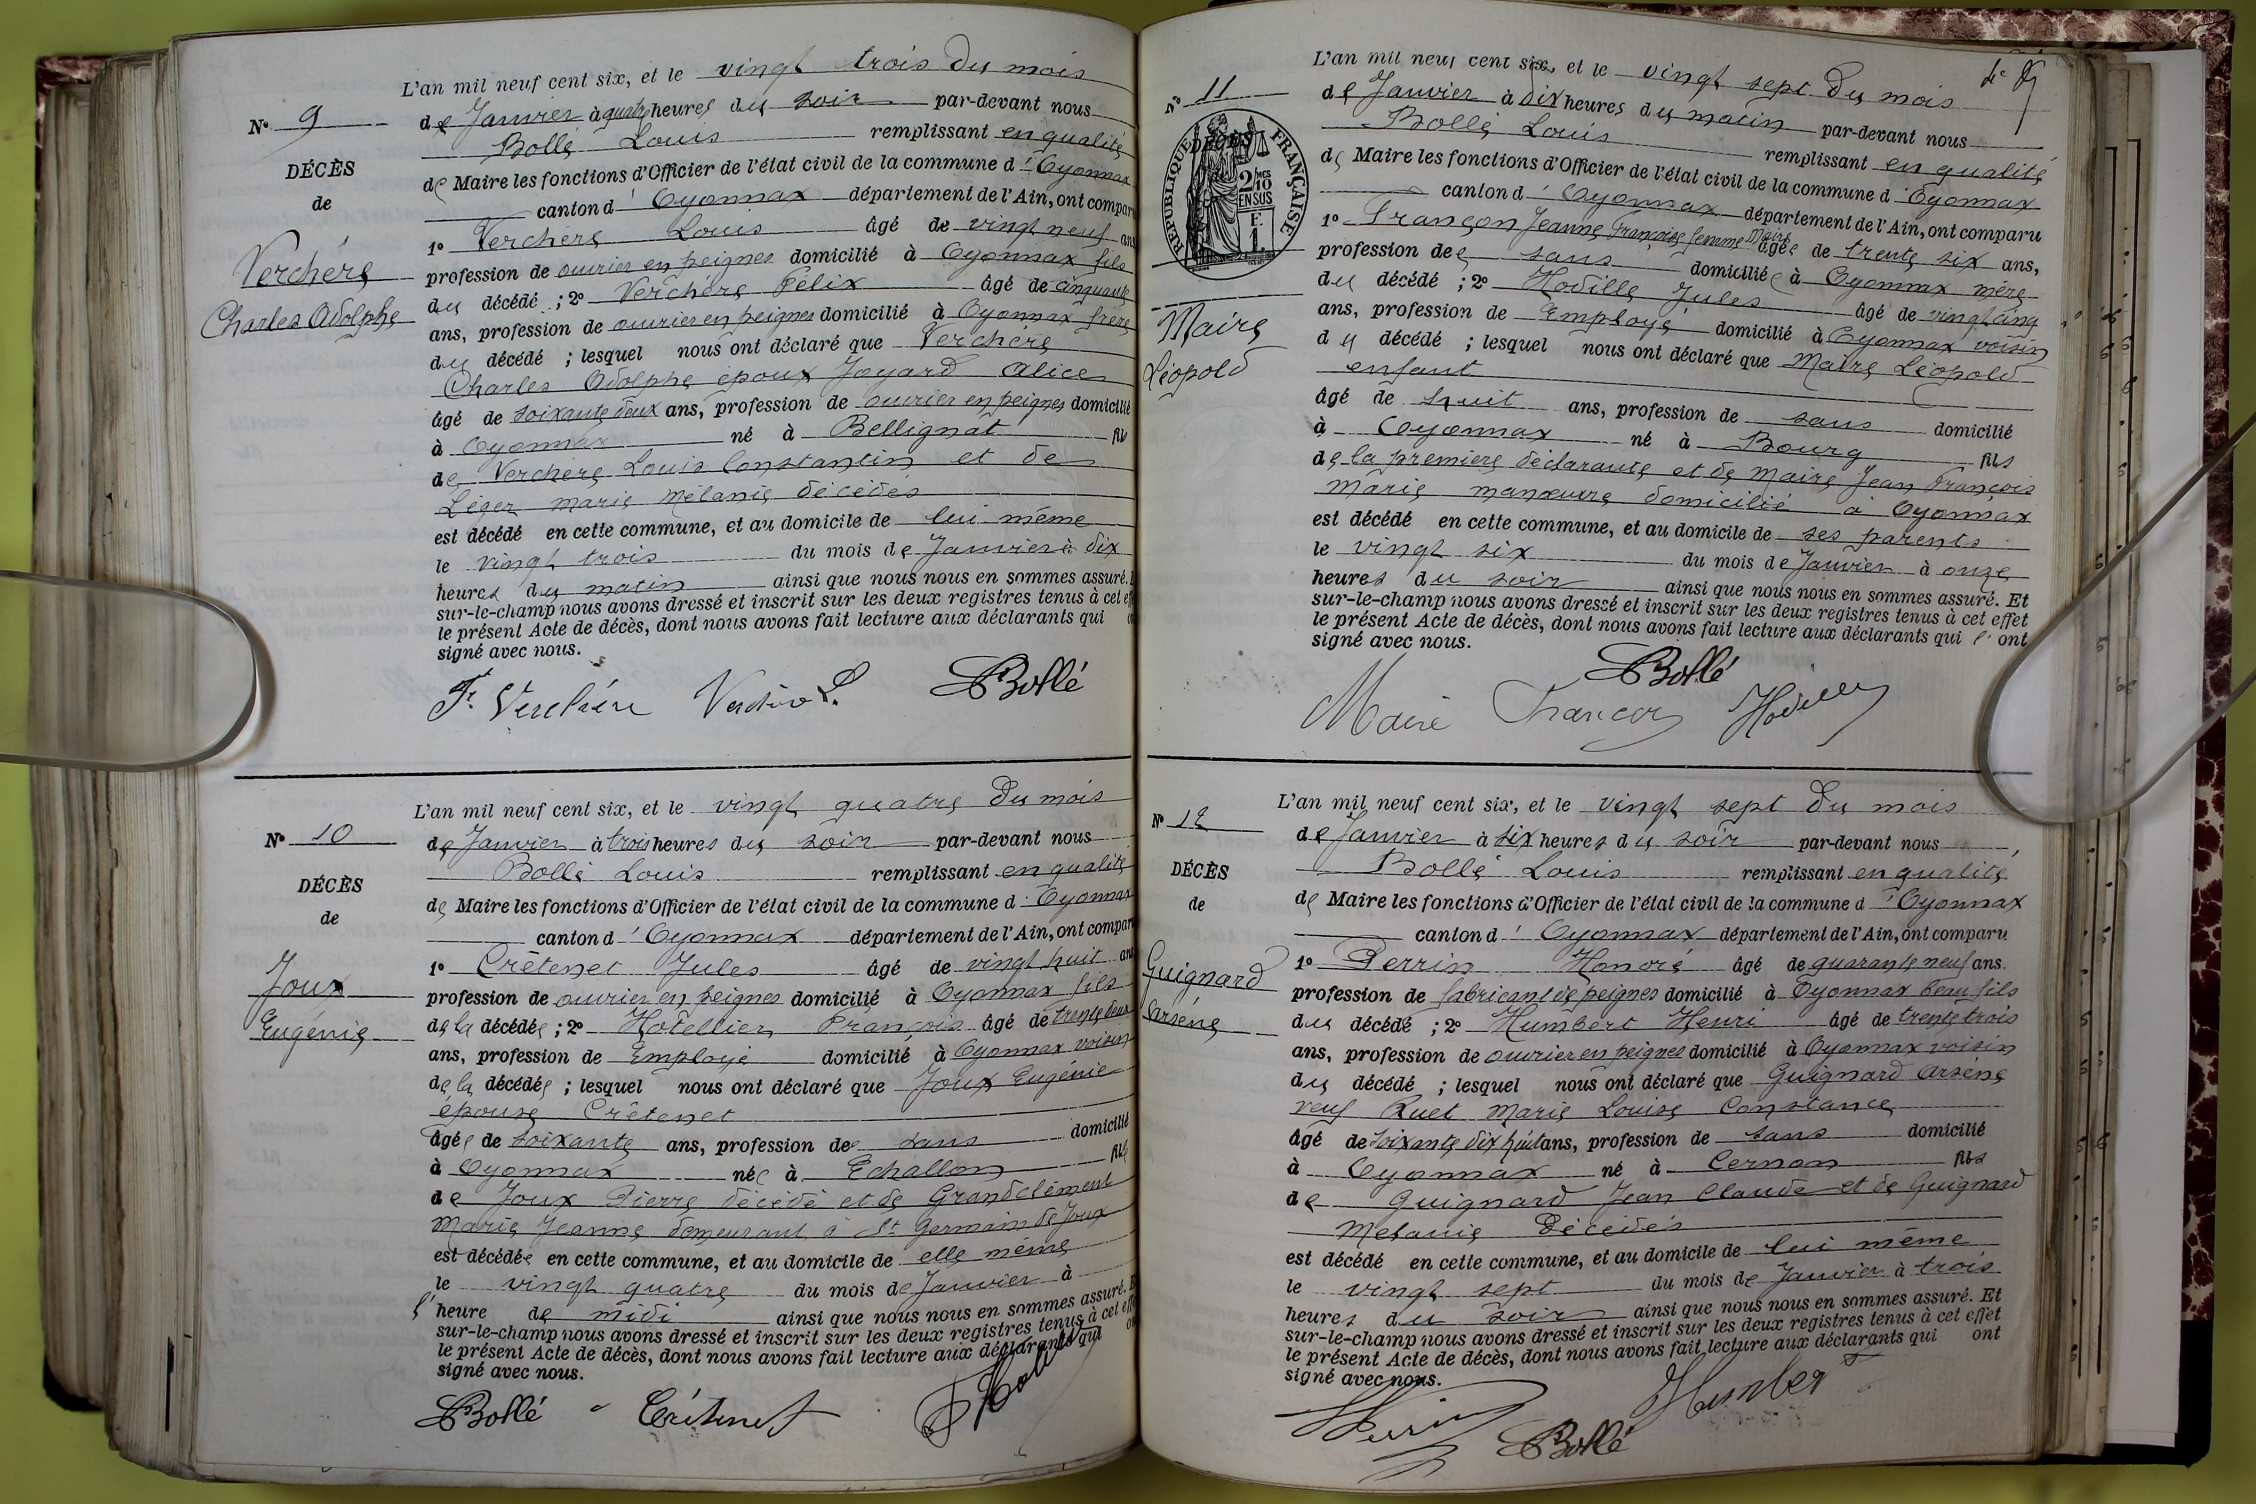 L'an mil neuf cent six, et le vingt trois du mois
N° 9
de Janvier à quatre heures du soir par-devant nous
Bollé Louis remplissant en qualité
DÉCÈS
de Maire les fonctions d'Officier de l'état civil de la commune d'Oyonnax
de
canton d'Oyonnax département de l'Ain, ont comparu
1° Verchère Louis âgé de vingt neuf ans
Verchère
profession de ouvrier en peignes domicilié à Oyonnax fils
Charles Adolphe
du décédé ; 2° Verchère Félix âgé de cinquante
ans, profession de ouvrier en peignes domicilié à Oyonnax frère
du décédé ; lesquel nous ont déclaré que Verchère
Charles Adolphe époux Joyard Alice
âgé de soixante deux ans, profession de ouvrier en peignes domicilié
à Oyonnax né à Bellignat fils
de Verchère Louis Constantin et de
Léger Marie Mélanie décédés
est décédé en cette commune, et au domicile de lui même
le vingt trois du mois de Janvier à dix
heures du matin ainsi que nous nous en sommes assuré.
sur-le-champ nous avons dressé et inscrit sur les deux registres tenus à cet effet
le présent Acte de décès, dont nous avons fait lecture aux déclarants qui
signé avec nous.
F. Verchère Verchère L. Bollé
L'an mil neuf cent six, et le vingt quatre du mois
N° 10
de Janvier à trois heures du soir par-devant nous
Bollé Louis remplissant en qualité
DÉCÈS
de Maire les fonctions d'Officier de l'état civil de la commune d'Oyonnax
de
canton d'Oyonnax département de l'Ain, ont comparu
1° Crêtenet Jules âgé de vingt huit ans
Joux
profession de ouvrier en peignes domicilié à Oyonnax fils
Eugénie
de la décédée ; 2° Hotellier François âgé de trente deux
ans, profession de Employé domicilié à Oyonnax voisin
de la décédée ; lesquel nous ont déclaré que Joux Eugénie
épouse Crêtenet
âgée de soixante ans, profession de sans domicilié
à Oyonnax née à Echallon fils
de Joux Pierre décédé et de Grandclément
Marie Jeanne demeurant à St Germain de Joux
est décédée en cette commune, et au domicile de elle même
le vingt quatre du mois de Janvier à
l'heure de midi ainsi que nous nous en sommes assuré.
sur-le-champ nous avons dressé et inscrit sur les deux registres tenus à cet effet
le présent Acte de décès, dont nous avons fait lecture aux déclarants qui
signé avec nous.
Bollé Crétenet
L'an mil neuf cent six, et le vingt sept du mois
N° 11
de Janvier à dix heures du matin par-devant nous
Bollé Louis remplissant en qualité
DÉCÈS
RÉPUBLIQUE FRANÇAISE
2/10 MES EN SUS
F
1
de Maire les fonctions d'Officier de l'état civil de la commune d'Oyonnax
canton d'Oyonnax département de l'Ain, ont comparu
1° Françon Jeanne Françoise femme Maire âgée de trente six ans,
profession de sans domiciliée à Oyonnax mère
du décédé ; 2° Hodille Jules âgé de vingt cinq
Maire
ans, profession de Employé domicilié à Oyonnax voisin
Léopold
du décédé ; lesquel nous ont déclaré que Maire Léopold
enfant
âgé de huit ans, profession de sans domicilié
à Oyonnax né à Bourg fils
de la première déclarante et de Maire Jean François
Marie manœuvre domicilié à Oyonnax
est décédé en cette commune, et au domicile de ses parents
le vingt six du mois de Janvier à onze
heures du soir ainsi que nous nous en sommes assuré. Et
sur-le-champ nous avons dressé et inscrit sur les deux registres tenus à cet effet
le présent Acte de décès, dont nous avons fait lecture aux déclarants qui l'ont
signé avec nous.
Bollé
Maire Françon Hodille
L'an mil neuf cent six, et le vingt sept du mois
N° 12
de Janvier à six heures du soir par-devant nous
Bollé Louis remplissant en qualité
DÉCÈS
de Maire les fonctions d'Officier de l'état civil de la commune d'Oyonnax
de
canton d'Oyonnax département de l'Ain, ont comparu
1° Perrin Honoré âgé de quarante neuf ans
Guignard
profession de fabricant de peignes domicilié à Oyonnax beau fils
Arsène
du décédé ; 2° Humbert Henri âgé de trente trois
ans, profession de ouvrier en peignes domicilié à Oyonnax voisin
du décédé ; lesquel nous ont déclaré que Guignard Arsène
veuf Ruet Marie Louise Constance
âgé de soixante dix huit ans, profession de sans domicilié
à Oyonnax né à Cernon fils
de Guignard Jean Claude et de Guignard
Mélanie Décédés
est décédé en cette commune, et au domicile de lui même
le vingt sept du mois de Janvier à trois
heures du soir ainsi que nous nous en sommes assuré. Et
sur-le-champ nous avons dressé et inscrit sur les deux registres tenus à cet effet
le présent Acte de décès, dont nous avons fait lecture aux déclarants qui ont
signé avec nous.
Perrin Humbert
Bollé